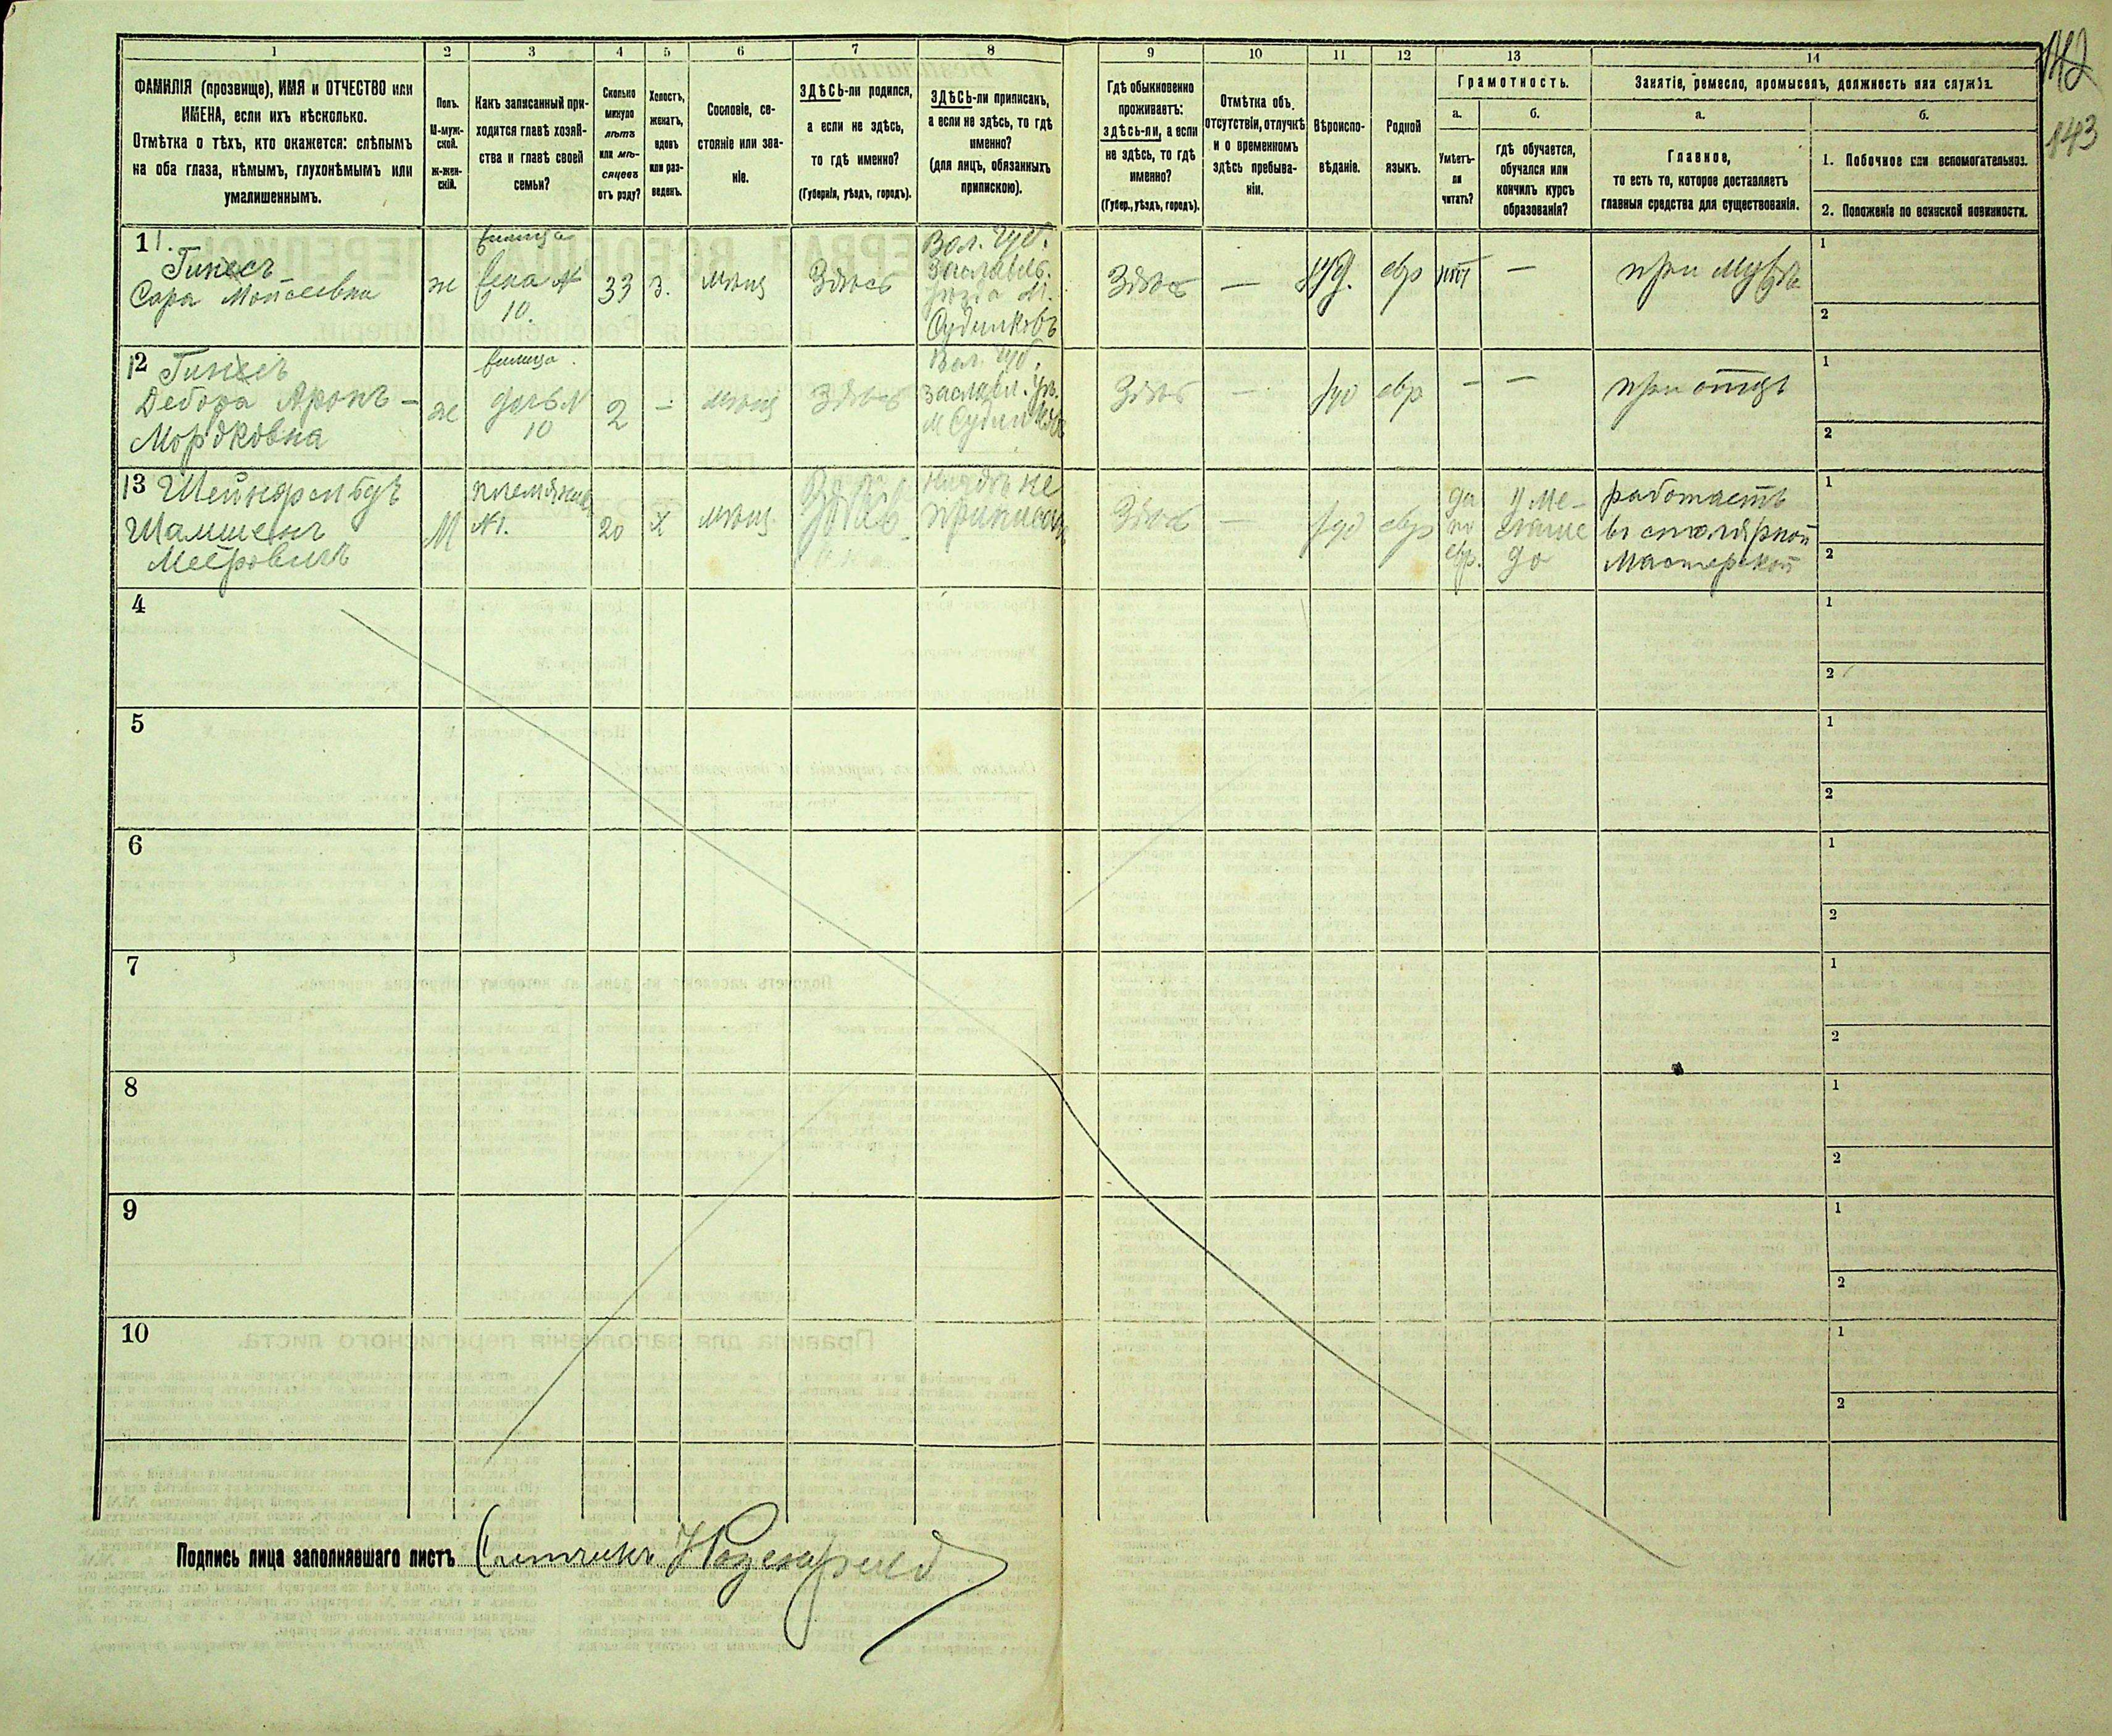 142
143
1
2
3
4
5
6
7
8
9
10
11
12
13
14
ФАМИЛІЯ (прозвище), ИМЯ и ОТЧЕСТВО или
ИМЕНА, если ихъ нѣсколько.
Отмѣтка о тѣхъ, кто окажется: слѣпымъ
на оба глаза, нѣмымъ, глухонѣмымъ или
умалишеннымъ.
Полъ.
М-муж-
ской.
ж-жен-
скій.
Какъ записанный при-
ходится главѣ хозяй-
ства и главѣ своей
семьи?
Сколько
минуло
лѣтъ
или мѣ-
сяцевъ
отъ роду?
Холостъ,
женатъ,
вдовъ
или раз-
веденъ.
Сословіе, со-
стояніе или зва-
ніе.
ЗДѢСЬ-ли родился,
а если не здѣсь,
то гдѣ именно?
(Губернія, уѣздъ, городъ).
ЗДѢСЬ-ли приписанъ,
а если не здѣсь, то гдѣ
именно?
(для лицъ, обязанныхъ
припискою).
Гдѣ обыкновенно
проживаетъ:
здѣсь-ли, а если
не здѣсь, то гдѣ
именно?
(Губер., уѣздъ, городъ).
Отмѣтка объ
отсутствіи, отлучкѣ
и о временномъ
здѣсь пребыва-
ніи.
Вѣроиспо-
вѣданіе.
Родной
языкъ.
Грамотность.
а.
Умѣетъ-
ли
читать?
б.
гдѣ обучается,
обучался или
кончилъ курсъ
образованія?
Занятіе, ремесло, промыселъ, должность или служба.
а.
Главное,
то есть то, которое доставляетъ
главныя средства для существованія.
б.
1. Побочное или вспомогательное.
2. Положеніе по воинской повинности.
11.
Гинесъ
Сара Мойсеевна
ж
жена №
10.
33
з.
мѣщ
Здѣсь
Вол. губ.
Заславль.
уѣзда м.
Судилковъ
Здѣсь
—
іуд.
евр
нѣт
—
при мужѣ
1
2
12 Гинесъ
Дебора Аронъ-
Мордковна
ж
дочь №
10
2
—
мѣщ
Здѣсь
Вол. губ.
Заславл. уѣ.
м Судилков
Здѣсь
—
іуд
евр
—
—
при отцѣ
1
2
13 Шейнфельдъ
Шамшенъ
Мееровичъ
М
племянник
№1.
20
Х
мѣщ.
нигдѣ не
приписан
Здѣсь
—
іуд
евр
да
по
евр.
у ме-
ламе
да
работаетъ
въ столярной
мастерской
1
2
4
1
2
5
1
2
6
1
2
7
1
2
8
1
2
9
1
2
10
1
2
Подпись лица заполнявшаго листъ Счетчикъ